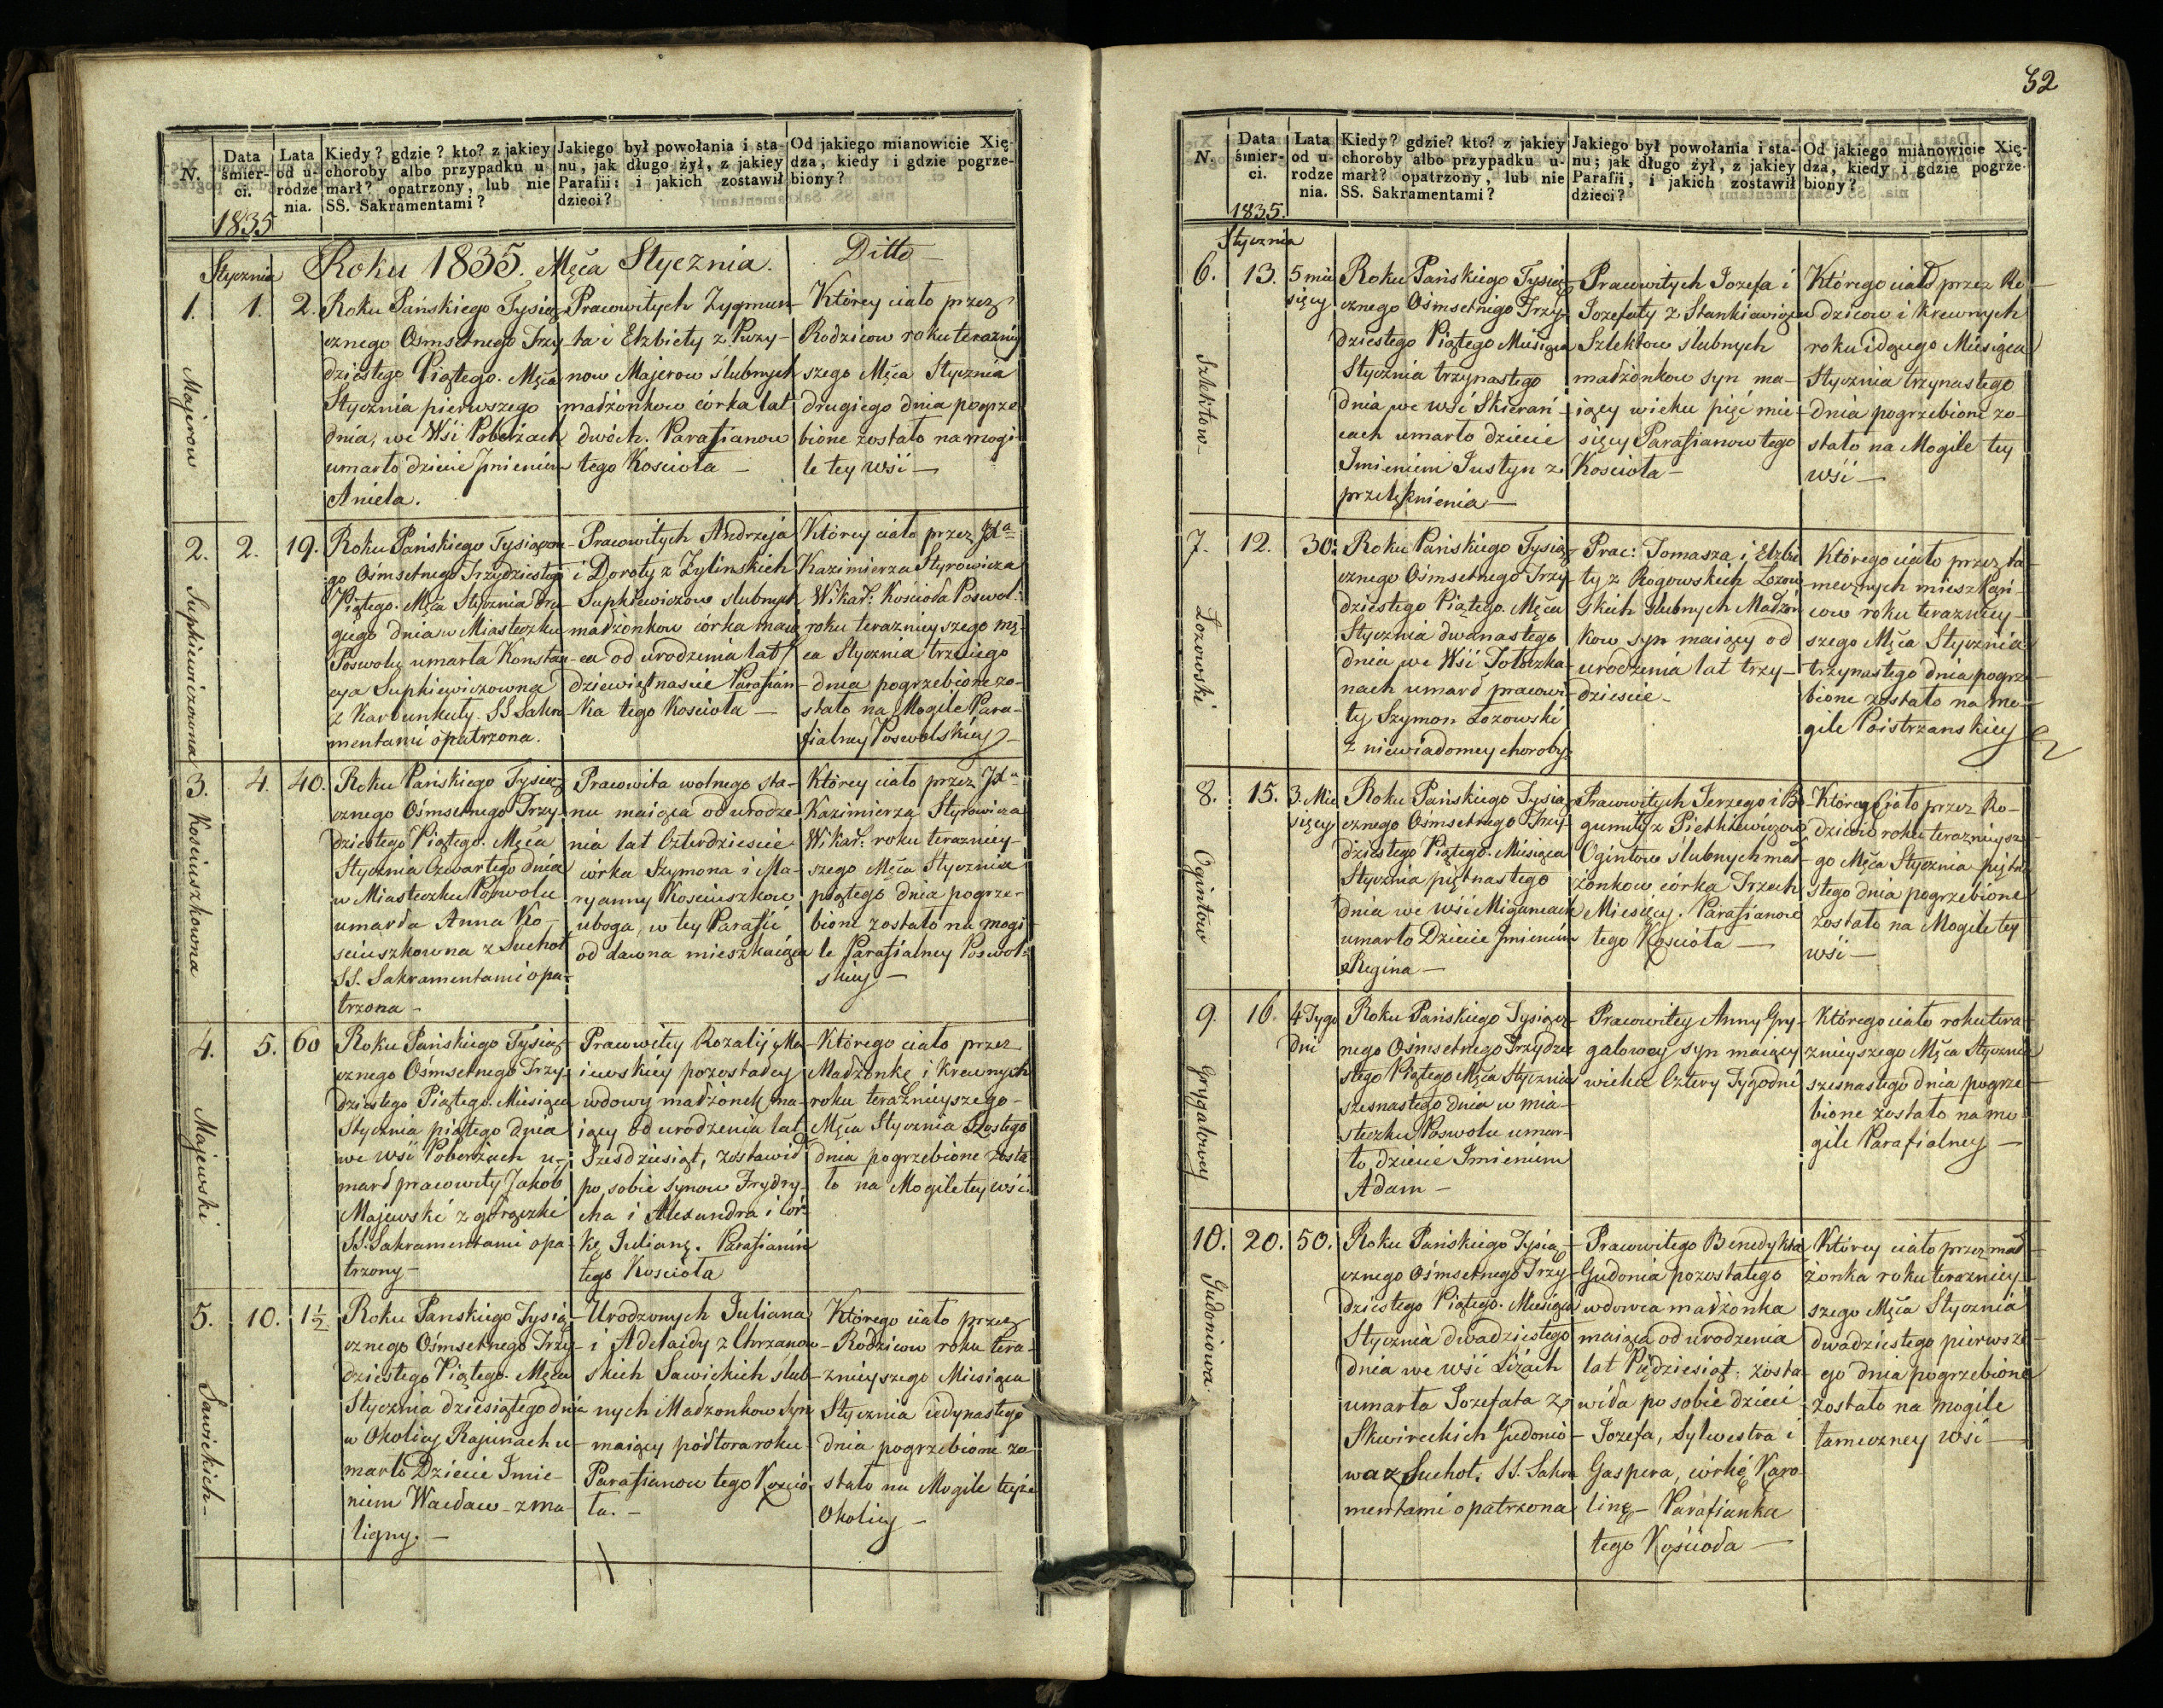 32
N.
Data śmierci.
Lata od urodzenia.
Kiedy? gdzie? kto? z jakiey
choroby albo przypadku u-
marł? opatrzony, lub nie
SS. Sakramentami?
Jakiego był powołania i sta-
nu, jak długo żył, z jakiey
Parafii: i jakich zostawił
dzieci?
Od jakiego mianowicie Xię-
dza, kiedy i gdzie pogrze-
biony?
1835
Stycznia
Roku 1835. Męca Stycznia. Ditto
1.
Majerow
1.
2.
Roku Pańskiego Tysią-
cznego Ośmsetnego Trzy-
dziestego Piątego. Męca
Stycznia pierwszego
dnia, we Wśi Poberżach
umarło dziecie Jmieniem
Aniela.
Pracowitych Zygmun-
ta i Elżbiety z Puzy-
now Majerow ślubnych
małżonkow córka lat
dwóch. Parafianow
tego Kościoła —
Którey ciało przez
Rodzicow roku teraźniey
szego Męca Stycznia
drugiego dnia pogrze
bione zostało na mogi
le tey wśi —
2.
Supkiewiczowna
2.
19.
Roku Pańskiego Tysiączne-
go Ośmsetnego Trzydziestego
Piątego. Męca Stycznia dru-
giego dnia w Miasteczku
Poswolu umarła Konstan-
cya Supkiewiczowna
z Karbunkuły. SS Sakra-
mentami opatrzona.
Pracowitych Andrzeja
i Doroty z Zylinskich
Supkiewiczow slubnych
małżonkow córka maią
ca od urodzenia lat
dziewiętnaście Parafian-
ka tego Kościoła —
Którey ciało przez Jxa
Kazimierza Styrowicza
Wikar: Kościoła Poswol:
roku teraznieyszego mę-
ca Stycznia trzeciego
dnia pogrzebione zo-
stało na Mogile Para-
fialney Poswolskiey —
3.
Kościuszkowna
4.
40.
Roku Pańskiego Tysią-
cznego Ośmsetnego Trzy-
dziestego Piątego. Męca
Stycznia Czwartego dnia
w Miasteczku Poswolu
umarła Anna Ko-
sciuszkowna z Suchot
SS. Sakramentami opa-
trzona —
Pracowita wolnego sta-
nu maiąca od urodze-
nia lat Czterdziescie
córka Szymona i Ma-
ryanny Kosciuszkow
uboga, w tey Parafii
od dawna mieszkaiąca
Którey ciało przez Jxa
Kazimierza Styrowicza
Wikar: roku teraźniey-
szego Męca Stycznia
piątego dnia pogrze-
bione zostało na mogi
le Parafialney Poswol-
skiey —
4.
Majewski
5.
60
Roku Pańskiego Tysią-
cznego Ośmsetnego Trzy-
dziestego Piątego. Miesiąca
Stycznia piątego dnia
we wśi Poberżach u-
marł pracowity Jakób
Majewski z gorączki
SS. Sakramentami opa-
trzony —
Pracowitey Rozalij Ma-
iewskiey pozostałey
wdowy małżonek ma-
iący od urodzenia lat
Szesdziesiąt, zostawił
po sobie synow Frydry-
cha i Alexandra i cór-
kę Julianę. Parafianin
tego Kościoła
Którego ciało przez
Małżonkę i krewnych
roku teraźnieyszego
Męca Stycznia Szostego
dnia pogrzebione zosta
ło na Mogile tey wśi
5.
Sawickich
10.
1½
Roku Pańskiego Tysią-
cznego Ośmsetnego Trzy-
dziestego Piątego. Męca
Stycznia dziesiątego dnia
w Okolicy Rajunach u-
marło Dziecie Imie-
niem Wacław — z ma-
ligny. —
Urodzonych Juliana
i Adelaidy z Chrzanow-
skich Sawickich slub-
nych Małżonkow Syn
maiący półtora roku
Parafianow tego Koscio-
ła. —
Którego ciało przez
Rodzicow roku tera-
źnieyszego Miesiąca
Stycznia iedynastego
dnia pogrzebione zo-
stało na Mogile teyże
Okolicy —
N.
Data śmierci.
Lata od urodzenia.
Kiedy? gdzie? kto? z jakiey
choroby albo przypadku u-
marł? opatrzony, lub nie
SS. Sakramentami?
Jakiego był powołania i sta-
nu; jak długo żył, z jakiey
Parafii, i jakich zostawił
dzieci?
Od jakiego mianowicie Xię-
dza, kiedy i gdzie pogrze-
biony?
1835.
Stycznia
6.
13.
5 mie
sięcy
Roku Pańskiego Tysią-
cznego Ośmsetnego Trzy-
dziestego Piątego Miesiąca
Stycznia trzynastego
dnia we wśi Skieran-
cach umarło dziecie
Imieniem Justyn z
przelęknienia —
Pracowitych Jozefa i
Jozefaty z Stankiewiczow
Szlektow slubnych
małżonkow syn ma-
iący wieku pięć mie-
sięcy Parafianow tego
Kościoła —
Którego ciało przez Ro-
dzicow i Krewnych
roku idącego Miesiąca
Stycznia trzynastego
dnia pogrzebione zo-
stało na Mogile tey
wśi —
7.
Łozowski
12.
30.
Roku Pańskiego Tysią-
cznego Ośmsetnego Trzy-
dziestego Piątego. Męca
Stycznia dwanastego
dnia we Wśi Tołoczka-
nach umarł pracowi-
ty Szymon Łozowski
z niewiadomey choroby.
Prac: Tomasza i Elżbie
ty z Rogowskich Łozow
skich slubnych Małżon
kow syn maiący od
urodzenia lat trzy-
dziescie —
Którego ciało przez ta-
mecznych mieszkań-
cow roku teraźniey-
szego Męca Stycznia
trzynastego dnia pogrze
bione zostało na mo-
gile Poistrzanskiey
8.
Ogintow
15.
3. Mie
sięcy
Roku Pańskiego Tysią-
cznego Ośmsetnego Trzy-
dziestego Piątego. Miesiąca
Stycznia piętnastego
dnia we wśi Miganeach
umarło Dziecie Jmieniem
Regina —
Pracowitych Jerzego i Bo-
gumiły z Pietkiewiczow
Ogintow ślubnych mał-
żonkow, córka Trzech
Miesięcy. Parafianow
tego Kościoła —
Którey Ciało przez Ro-
dzicow roku teraznieysze-
go Męca Stycznia piętna
stego dnia pogrzebione
zostało na Mogile tey
wśi —
9.
Grygalowey
16.
4 Tygo
dni
Roku Pańskiego Tysiącz-
nego Ośmsetnego Trzydzie
stego Piątego Męca Stycznia
szesnastego dnia w mia-
steczku Poswolu umar-
ło dziecie Imieniem
Adam —
Pracowitey Anny Gry-
galowey syn maiący
wieku Cztery Tygodni
Którego ciało roku tera-
źnieyszego Męca Stycznia
szesnastego dnia pogrze-
bione zostało na mo-
gile Parafialney —
10.
Gudoniowa.
20.
50.
Roku Pańskiego Tysią-
cznego Ośmsetnego Trzy-
dziestego Piątego. Miesiąca
Stycznia dwadziestego
dnia we wśi Liżach
umarła Jozefata z
Skwireckich Gudonio-
wa z Suchot. SS. Sakra
mentami opatrzona
Pracowitego Benedykta
Gudonia pozostałego
wdowca małżonka
maiąca od urodzenia
lat Pięćdziesiąt; zosta-
wiła po sobie dzieci
Jozefa, Sylwestra i
Gaspera, córkę Karo-
linę — Parafianka
tego Kościoła —
Którey ciało przez mał-
żonka roku teraźniey-
szego Męca Stycznia
dwadziestego pierwsze-
go dnia pogrzebione
zostało na mogile
tameczney wśi —